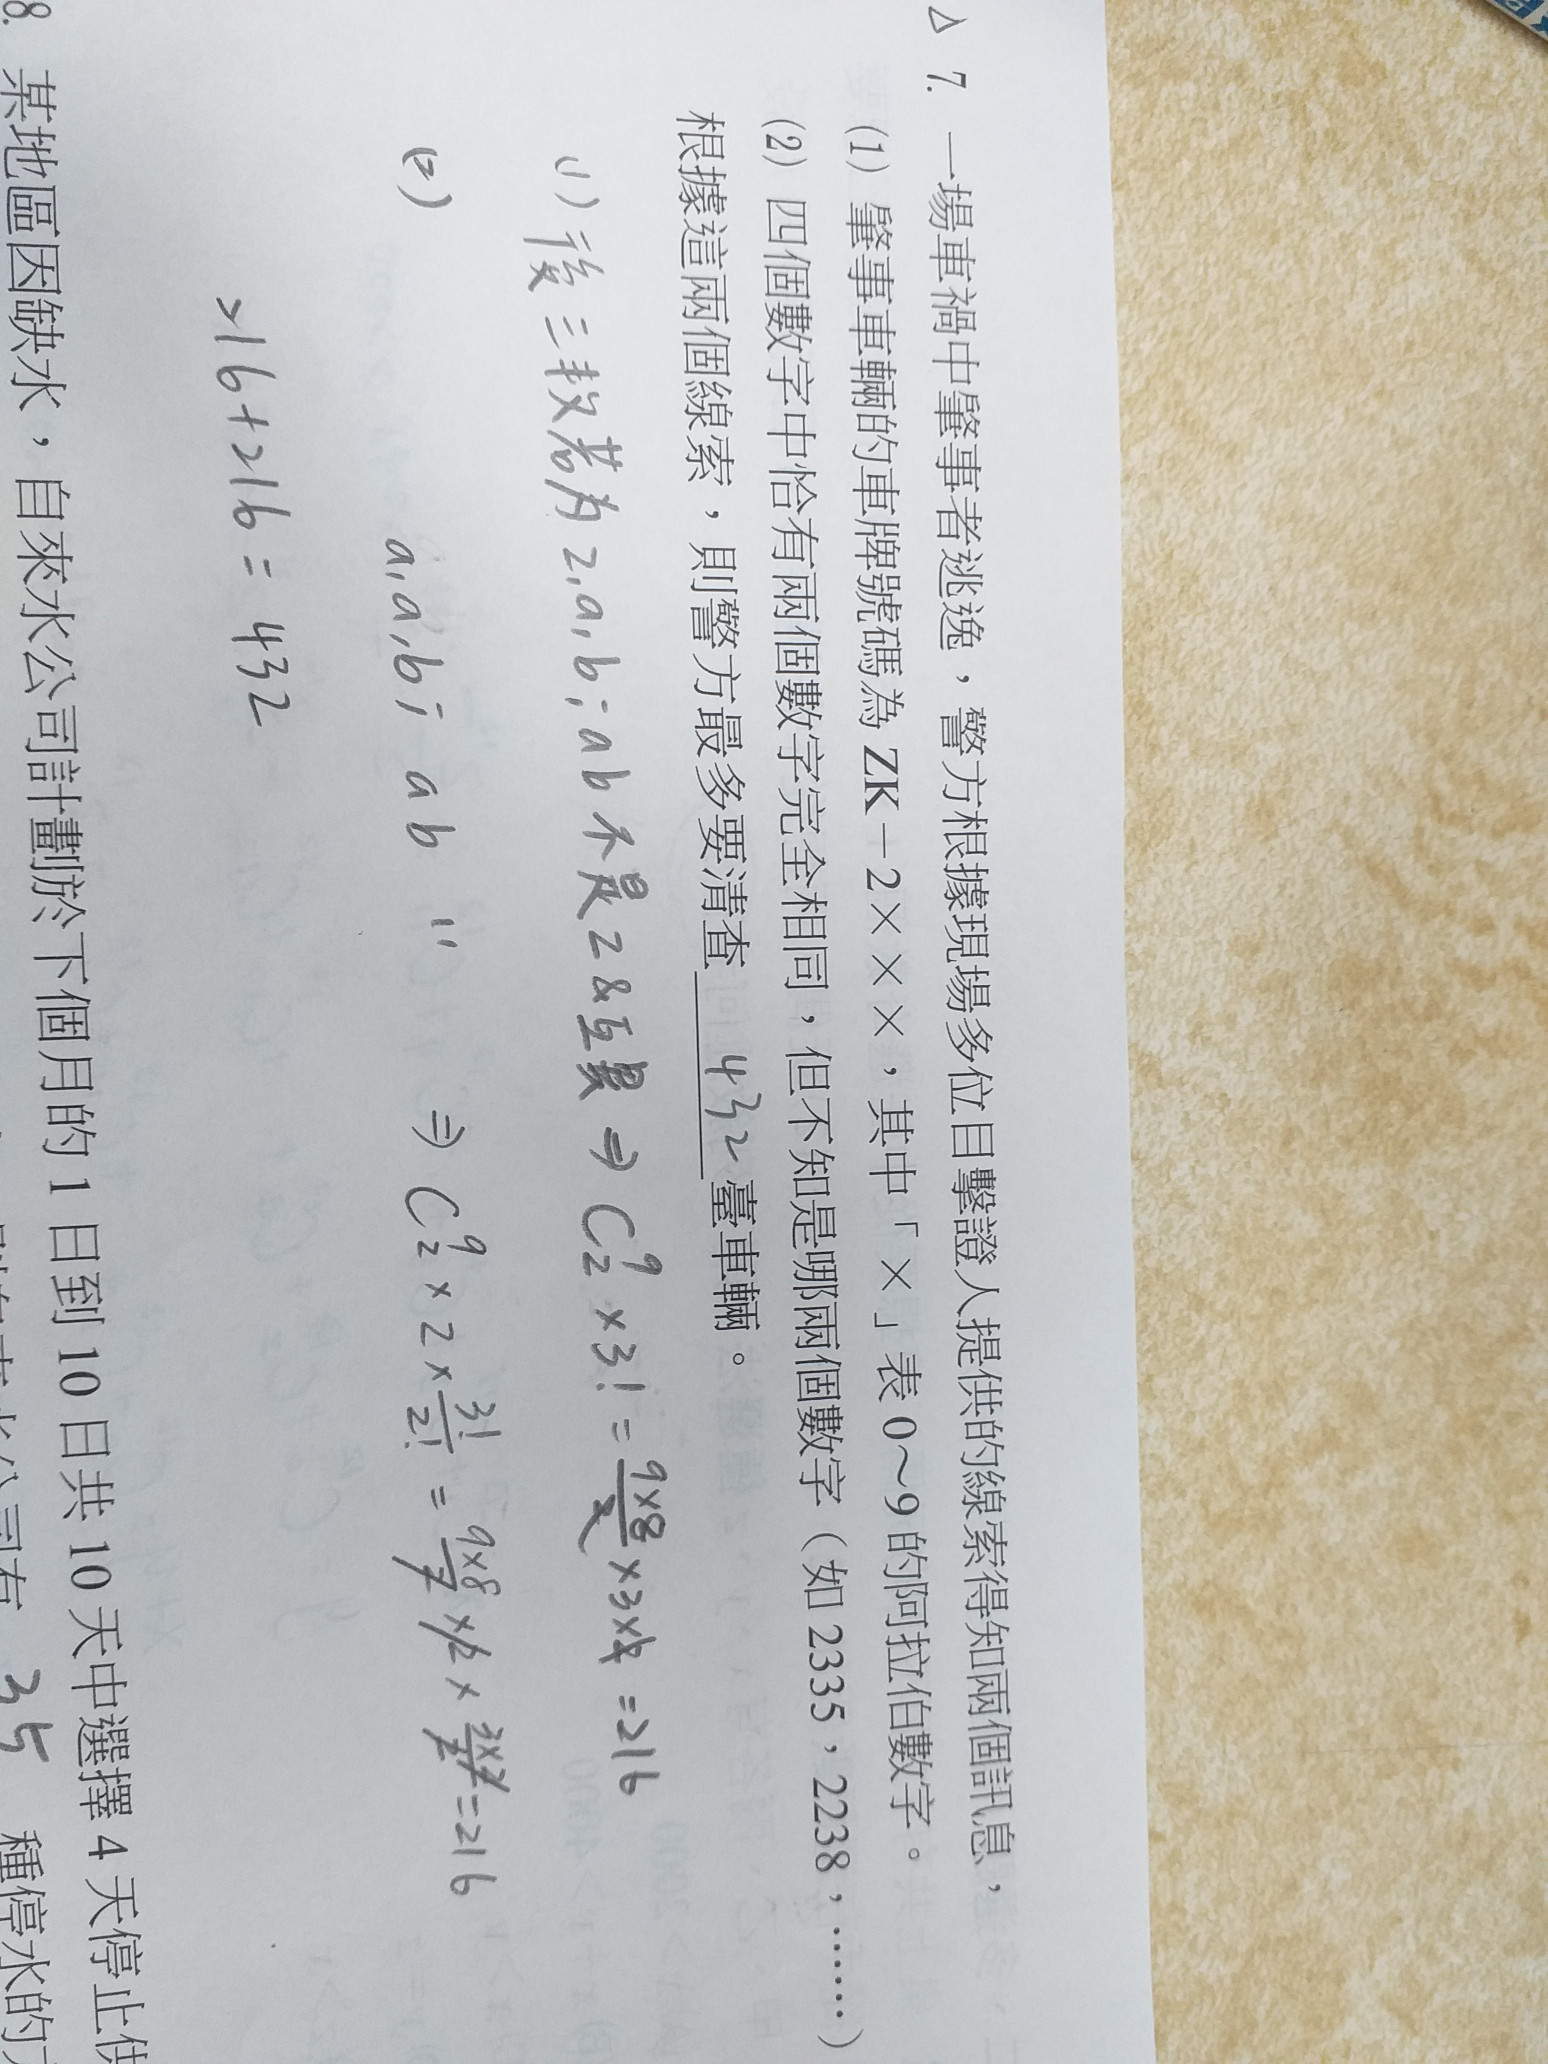 △ 7. 一場車禍中肇事者逃逸，警方根據現場多位目擊證人提供的線索得知兩個訊息，
(1) 肇事車輛的車牌號碼為 ZK－2×××，其中「×」表 0～9 的阿拉伯數字。
(2) 四個數字中恰有兩個數字完全相同，但不知是哪兩個數字（如 2335，2238，……）
根據這兩個線索，則警方最多要清查 432 臺車輛。
(1) 後三数若为 2, a, b; ab 不是2&互異 ⇒ C⁹₂ × 3! = 9×8/2 ×3×2 = 216
(2) a, a, b; ab 〃 ⇒ C⁹₂ × 2 × 3!/2! = 9×8/2 ×2× 3×2/2 = 216
216+216 = 432
8. 某地區因缺水，自來水公司計劃於下個月的 1 日到 10 日共 10 天中選擇 4 天停止供
35 種停水的方